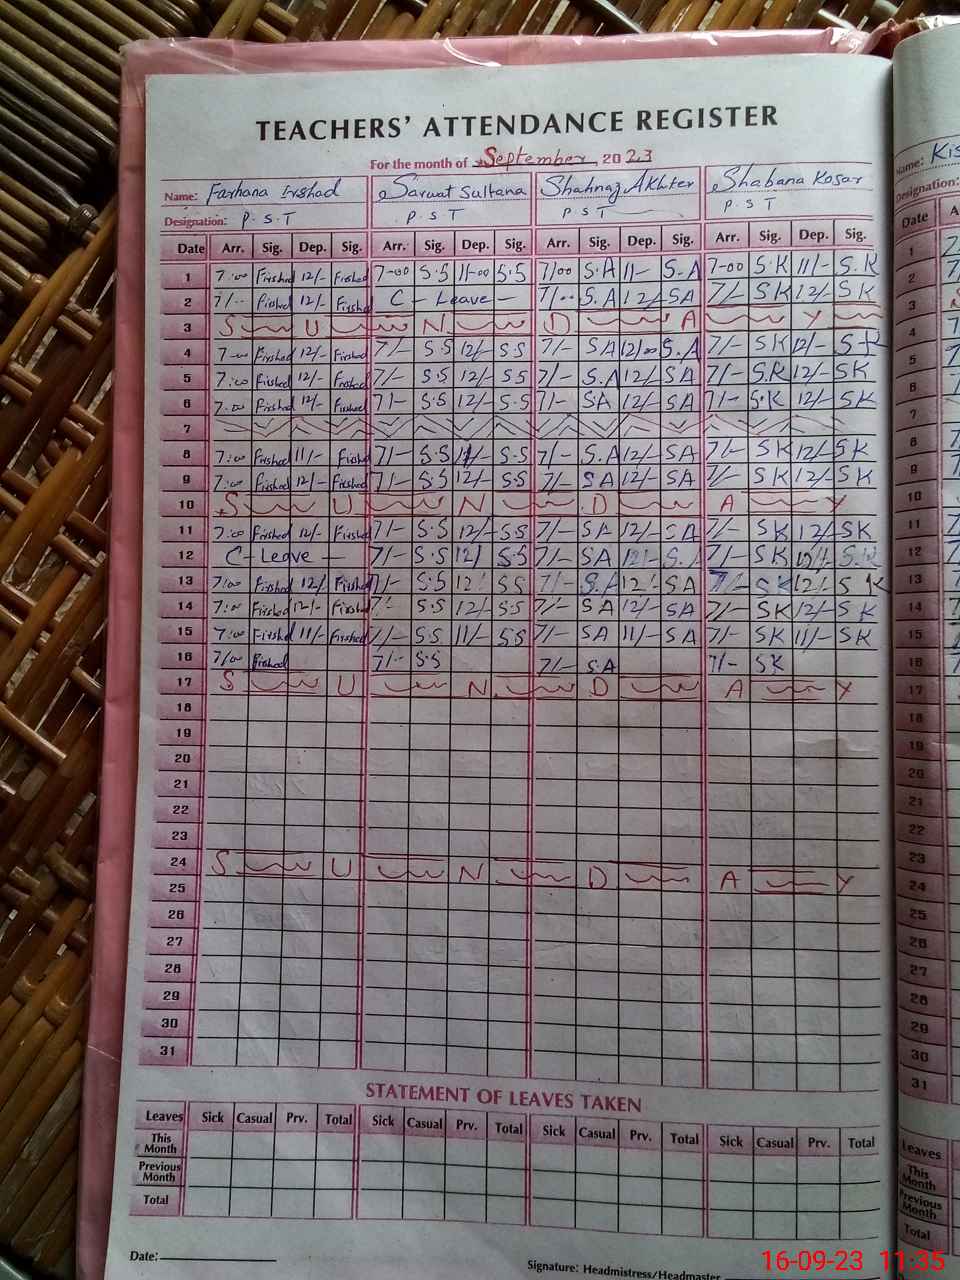 TEACHERS' ATTENDANCE REGISTER
For the month of September 2023
Name: Farhana Irshad Sarwat Sultana Shahnaz Akhter Shabana Kosar
Designation: P.S.T P.S.T P.S.T P.S.T
Date Arr. Sig. Dep. Sig. Arr. Sig. Dep. Sig. Arr. Sig. Dep. Sig. Arr. Sig. Dep. Sig.
1 7:00 Firshad 12/- Firshad 7-00 S.S 11-00 S.S 7/00 S.A 11- S.A 7-00 S.K 11/- S.K
2 7/-- Firshad 12/- Firshad C - Leave - 7/-- S.A 12/- SA 7/- SK 12/- SK
3 S U N D A Y
4 7-00 Firshad 12/- Firshad 7/- S.S 12/- S.S 7/- SA 12/00 S.A 7/- SK 12/- SK
5 7:00 Firshad 12/- Firshad 7/- S.S 12/- S.S 7/- S.A 12/- SA 7/- S.K 12/- SK
6 7:00 Firshad 12/- Firshad 7/- S.S 12/- S.S 7/- S.A 12/- SA 7/- S.K 12/- SK
7
8 7:00 Firshad 11/- Firshad 7/- S.S S.S 7/- S.A 12/- SA 7/- SK 12/- SK
9 7:00 Firshad 12/- Firshad 7/- S.S 12/- S.S 7/- SA 12/- SA 7/- SK 12/- SK
10 S U N D A Y
11 7:00 Firshad 12/- Firshad 7/- S.S 12/- S.S 7/- SA 12/- SA 7/- SK 12/- SK
12 C-Leave - 7/- S.S 12/ S.S 7/- SA 12/- S.A 7/- SK S.K
13 7:00 Firshad 12/ Firshad 7/- S.S 12/ SS 7/- S.A 12/- SA 7/- SK 12/- SK
14 7:00 Firshad 12/- Firshad 7/- S.S 12/- S.S 7/- SA 12/- SA 7/- SK 12/- SK
15 7:00 Firshad 11/- Firshad 7/- S.S 11/- S.S 7/- SA 11/- SA 7/- SK 11/- SK
16 7/00 Firshad 7/-- S.S 7/- S.A 7/- SK
17 S U N D A Y
18
19
20
21
22
23
24 S U N D A Y
25
26
27
28
29
30
31
STATEMENT OF LEAVES TAKEN
Leaves Sick Casual Prv. Total Sick Casual Prv. Total Sick Casual Prv. Total Sick Casual Prv. Total
This Month
Previous Month
Total
Date:
Signature: Headmistress/Headmaster
Name: Kis
Designation:
Date
1
2
3
4
5
6
7
8
9
10
11
12
13
14
15
16
17
18
19
20
21
22
23
24
25
26
27
28
29
30
31
Leaves
This Month
Previous Month
Total
16-09-23 11:35